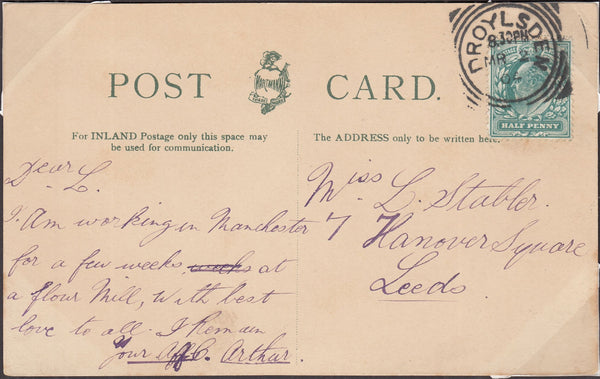 POST CARD.
DROYLSDEN
8.30PM
MR
04
HALF PENNY
For INLAND Postage only this space may
be used for communication.
The ADDRESS only to be written here.
Dear L.
I Am working in Manchester
for a few weeks at
a flour Mill, With best
love to all. I Remain
Your Aff. Arthur.
Miss L. Stabler.
7 Hanover Square
Leeds